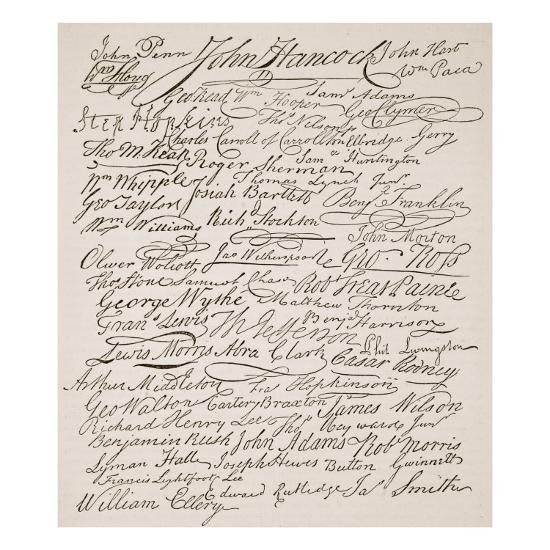 John Penn John Hancock John Hart
Wm Hooper Wm Paca
Geo Read Wm Hooper Saml Adams
Step Hopkins Thos Nelson Jr Geo Clymer
Charles Carroll of Carrollton Elbridge Gerry
Tho M. Kean Roger Sherman Saml Huntington
Wm Whipple Thomas Lynch Junr
Geo Taylor Josiah Bartlett Benj Franklin
Wm Williams Richd Stockton
John Morton
Oliver Wolcott Jno Witherspoon Geo. Ross
Thos Stone Samuel Chase Robt Treat Paine
George Wythe Matthew Thornton
Frans Lewis Th Jefferson Benja Harrison
Lewis Morris Abra Clark Phil. Livingston
Casar Rodney
Arthur Middleton Fras Hopkinson
Geo Walton Carter Braxton James Wilson
Richard Henry Lee Thos Heyward Junr
Benjamin Rush John Adams Rob Morris
Lyman Hall Joseph Hewes Button Gwinnett
Francis Lightfoot Lee
William Ellery Edward Rutledge Jas Smith